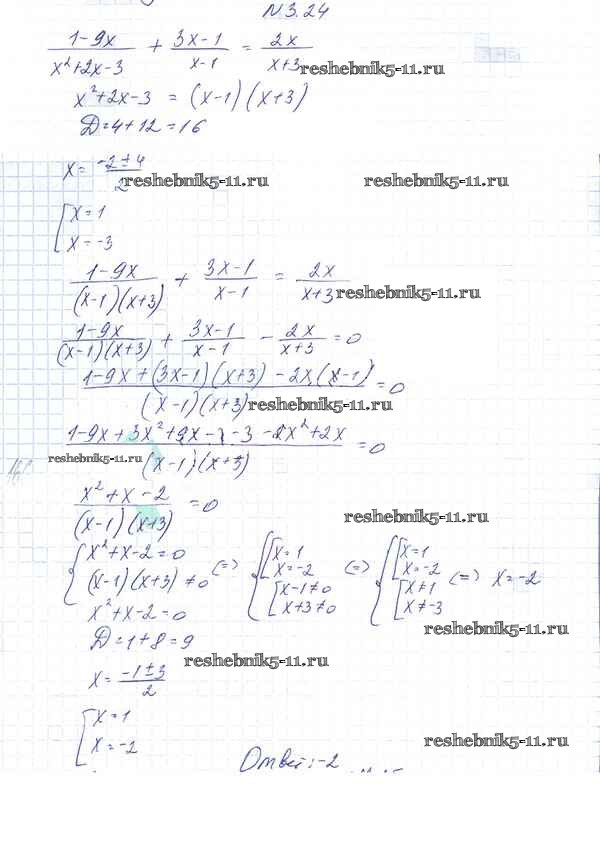 N 3.24
(1-9x)/(x²+2x-3) + (3x-1)/(x-1) = (2x)/(x+3) reshebnik5-11.ru
x²+2x-3 = (x-1)(x+3)
D=4+12=16
x = (-2±4)/2 reshebnik5-11.ru reshebnik5-11.ru
[x=1
x=-3
(1-9x)/((x-1)(x+3)) + (3x-1)/(x-1) = (2x)/(x+3) reshebnik5-11.ru
(1-9x)/((x-1)(x+3)) + (3x-1)/(x-1) - (2x)/(x+3) = 0
(1-9x+(3x-1)(x+3)-2x(x-1))/((x-1)(x+3)) = 0 reshebnik5-11.ru
(1-9x+3x²+9x-x-3-2x²+2x)/((x-1)(x+3)) = 0 reshebnik5-11.ru
(x²+x-2)/((x-1)(x+3)) = 0 reshebnik5-11.ru
{x²+x-2=0 <=> {[x=1 <=> {[x=1
x=-2 x=-2
(x-1)(x+3)≠0 [x-1≠0 [x≠1 <=> x=-2
x²+x-2=0 x+3≠0 x≠-3
D=1+8=9 reshebnik5-11.ru
reshebnik5-11.ru
x = (-1±3)/2
[x=1
x=-2 reshebnik5-11.ru
Ответ: -2